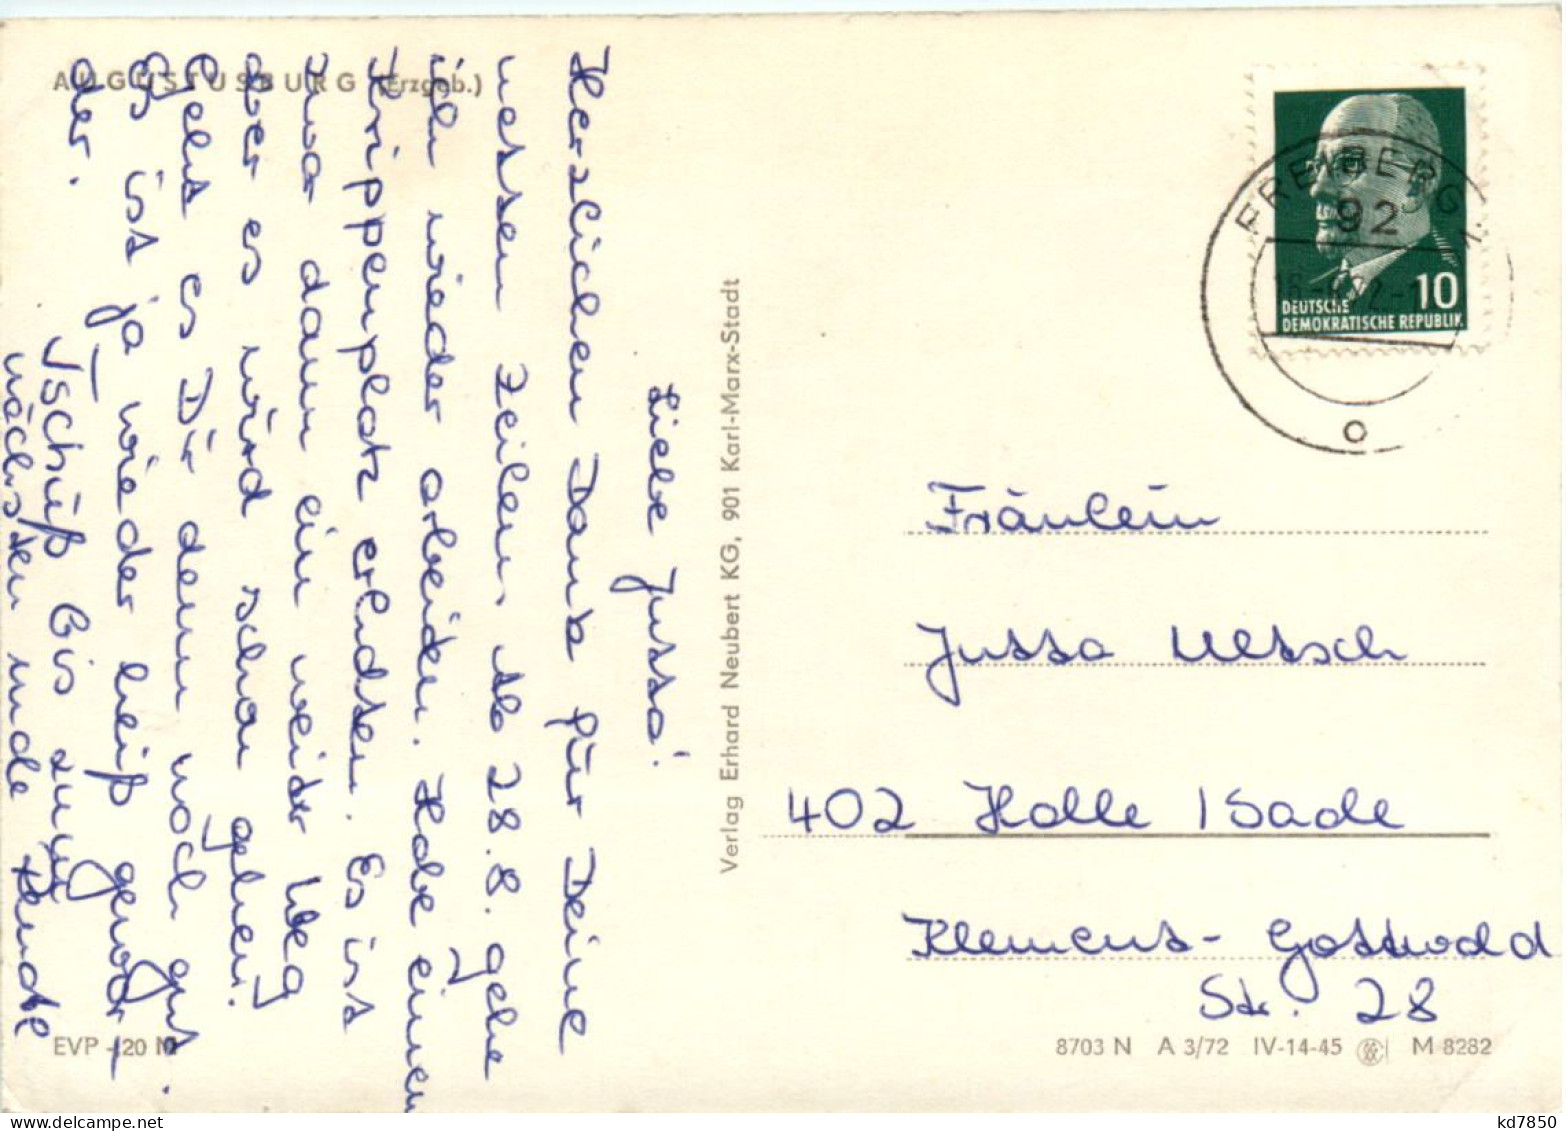 AUGUSTUSBURG (Erzgeb.)
Liebe Jutta!
Herzlichen Dank für Deine
netten Zeilen. Ab 28.8. gehe
ich wieder arbeiten. Habe einen
Krippenplatz erhalten. Es ist
zwar dann ein weiter Weg
aber es wird schon gehen.
Geht es Dir denn noch gut.
Es ist ja wieder heiß gewor-
der.
Tschüß bis zum
nächsten
Verlag Erhard Neubert KG, 901 Karl-Marx-Stadt
EVP -,20 M
FREIBERG 1
92
10
DEUTSCHE
DEMOKRATISCHE REPUBLIK
Fräulein
Jutta Ultsch
402 Halle / Saale
Klement-Gottwald
Str. 28
8703 N A 3/72 IV-14-45 M 8282
kd7850